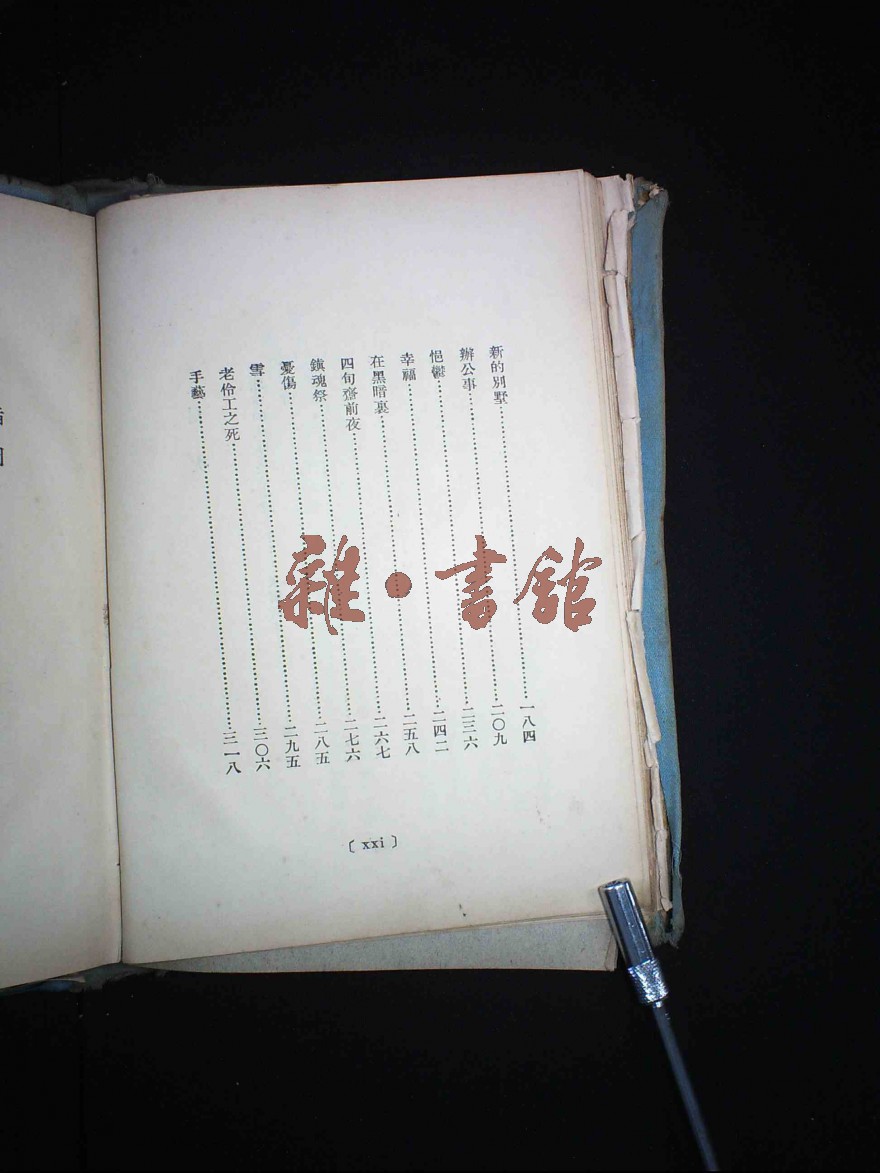 新的別墅……一八四
辦公事……二〇九
悒鬱……二三六
幸福……二四二
在黑暗裏……二五八
四旬齋前夜……二六七
鎮魂祭……二七六
憂傷……二八五
雪……二九五
老伶工之死……三〇六
手藝……三一八
〔xxi〕
雜•書館